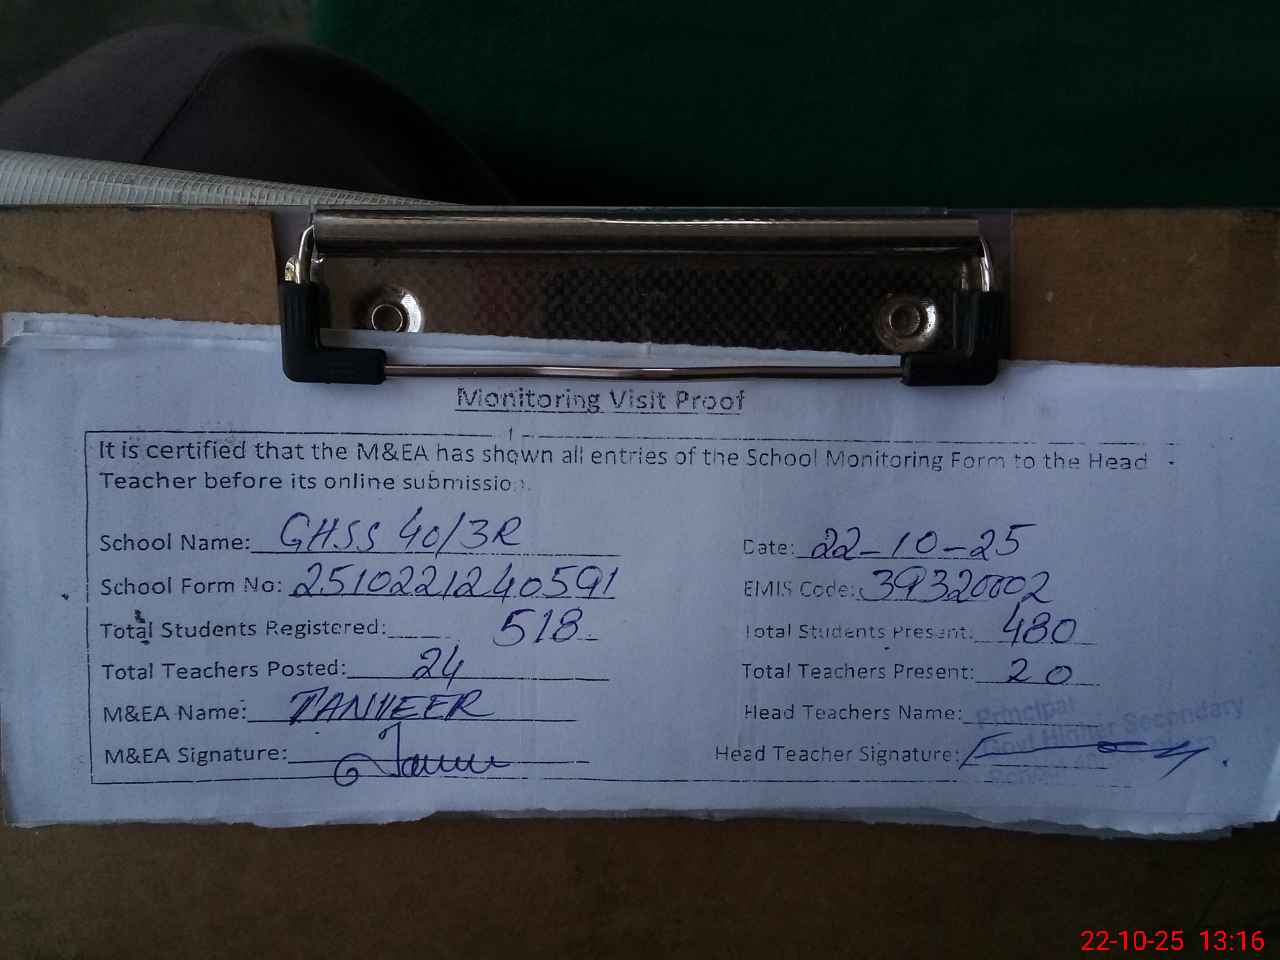 Monitoring Visit Proof
It is certified that the M&EA has shown all entries of the School Monitoring Form to the Head
Teacher before its online submission.
School Name: GHSS 40/3R Date: 22-10-25
School Form No: 2510221240591 EMIS Code: 39320002
Total Students Registered: 518 Total Students Present: 480
Total Teachers Posted: 24 Total Teachers Present: 20
M&EA Name: TANVEER Head Teachers Name:
Principal
Govt Higher Secondary
M&EA Signature: Head Teacher Signature:
School
22-10-25 13:16